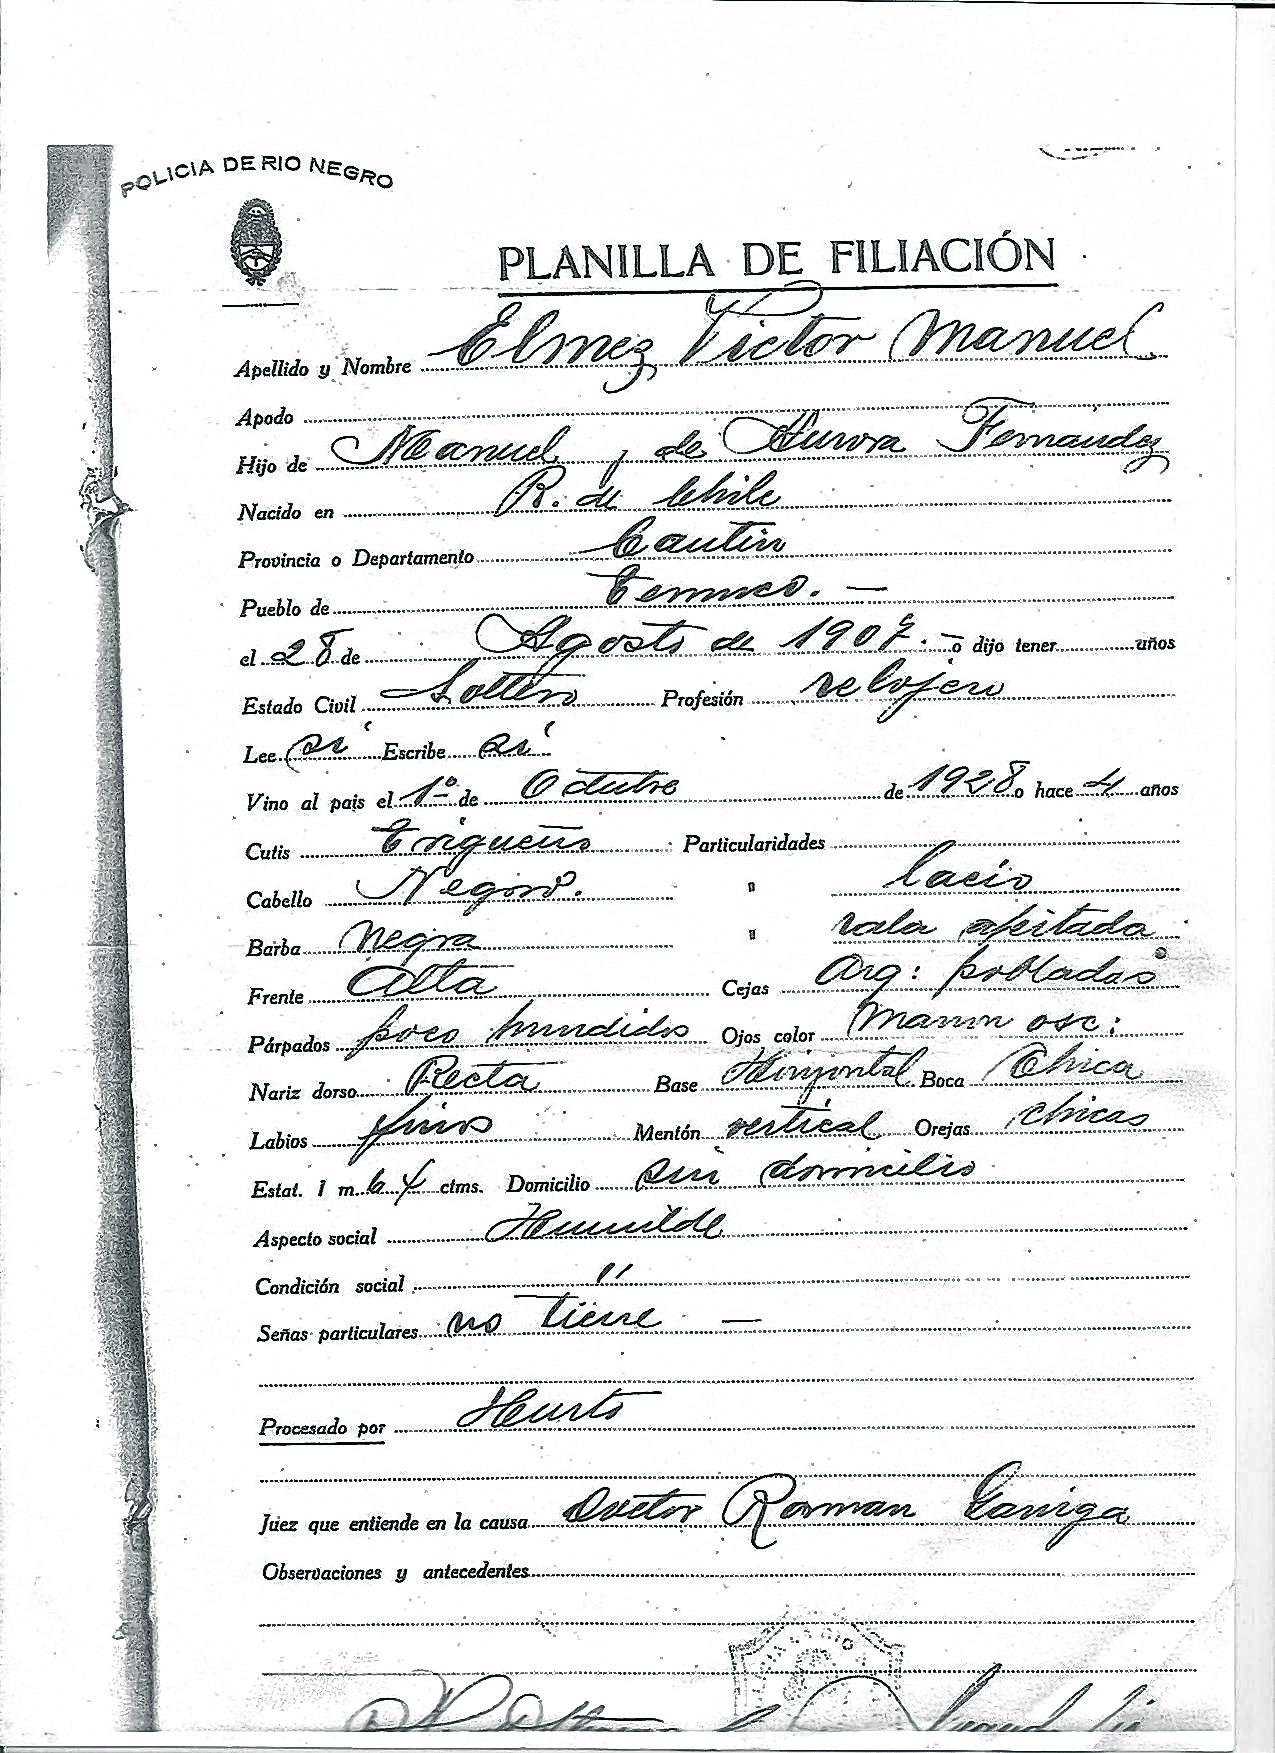 POLICIA DE RIO NEGRO
PLANILLA DE FILIACIÓN
Apellido y Nombre Elmez Victor Manuel
Apodo
Hijo de Manuel y de Aurora Fernández
Nacido en R. de Chile
Provincia o Departamento Cautin
Pueblo de Temuco. —
el 28 de Agosto de 1907. — o dijo tener años
Estado Civil Soltero Profesión relojero
Lee si Escribe si
Vino al pais el 1º de Octubre de 1928 o hace 4 años
Cutis Trigueño Particularidades
Cabello Negro. " lacio
Barba Negra " rala afeitada
Frente Alta Cejas Arq: pobladas
Párpados poco hundidos Ojos color Marron osc:
Nariz dorso Recta Base Horizontal Boca Chica
Labios finos Mentón vertical Orejas Chicas
Estat. 1 m. 64 ctms. Domicilio sin domicilio
Aspecto social Humilde
Condición social "
Señas particulares no tiene —
Procesado por Hurto
Juez que entiende en la causa Doctor Roman
Observaciones y antecedentes